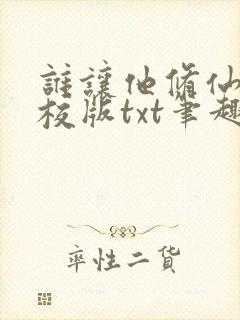 誰讓他脩仙
校版txt筆趣
率性二貨